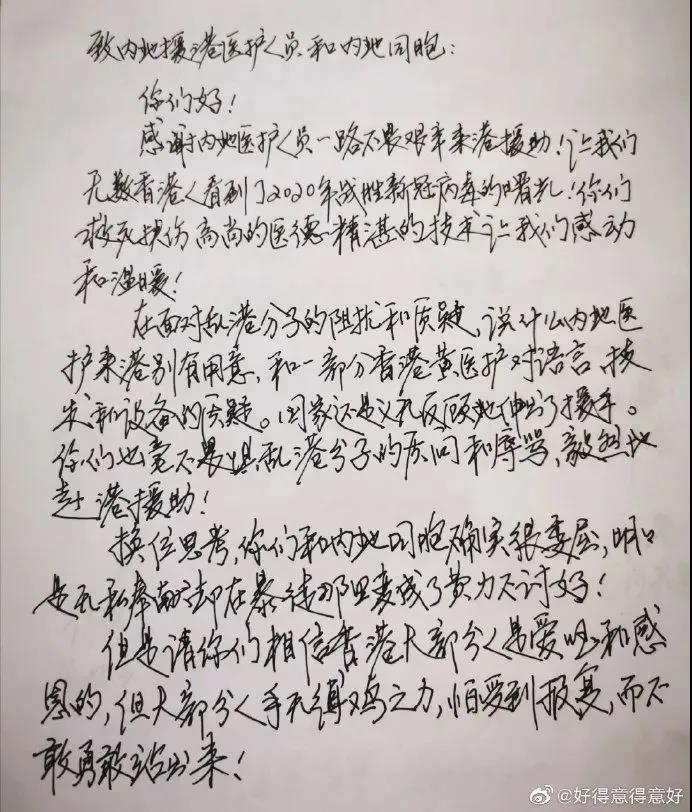 致内地援港医护人员和内地同胞:
你们好!
感谢内地医护人员一路不畏艰辛来港援助!让我们
无数香港人看到了2020年战胜新冠病毒的曙光!你们
救死扶伤高尚的医德精湛的技术让我们感动
和温暖!
在面对乱港分子的阻扰和质疑,说什么内地医
护来港别有用意,和一部分香港黄医护对语言、技
术和设备的质疑。国家还是义无反顾地伸出了援手。
你们也毫不畏惧乱港分子的质问和辱骂,毅然地
赴港援助!
换位思考,你们和内地同胞确实很委屈,明明
是无私奉献却在暴徒那里变成了费力不讨好!
但是请你们相信香港大部分人是爱国和感
恩的,但大部分人手无缚鸡之力,怕受到报复,而不
敢勇敢站出来!
@好得意得意好